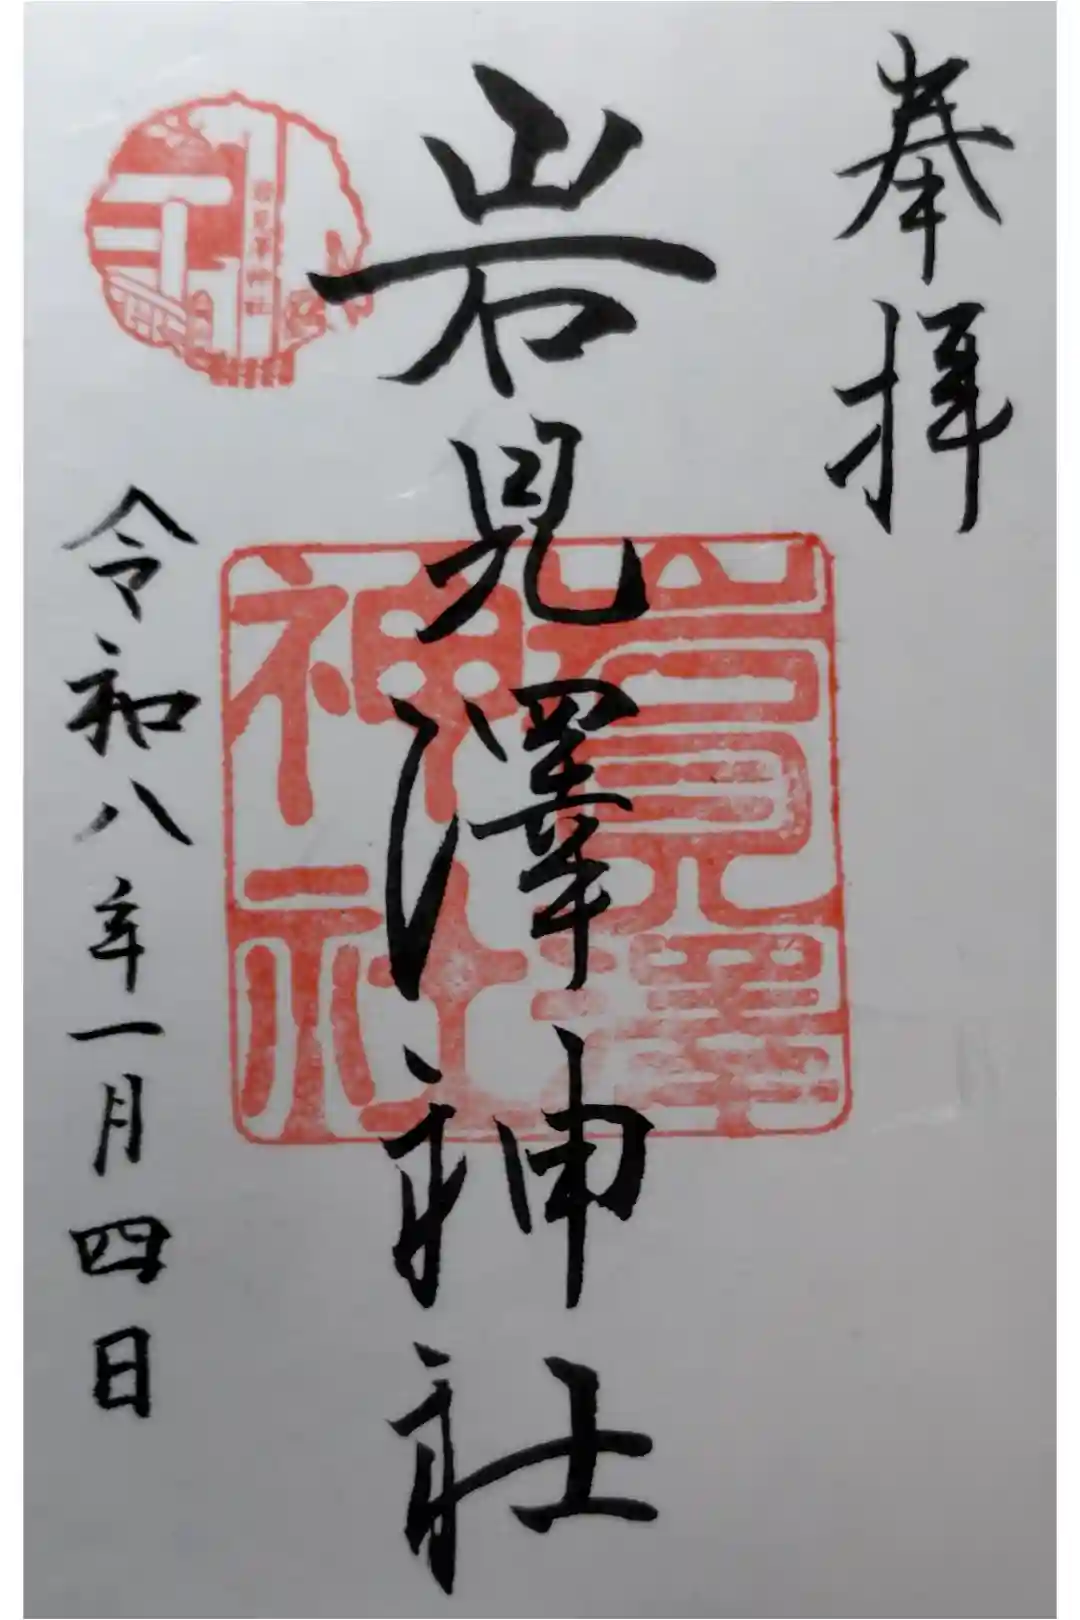 奉拝
岩見澤神社
岩見澤神社
令和八年一月四日
岩見澤神社